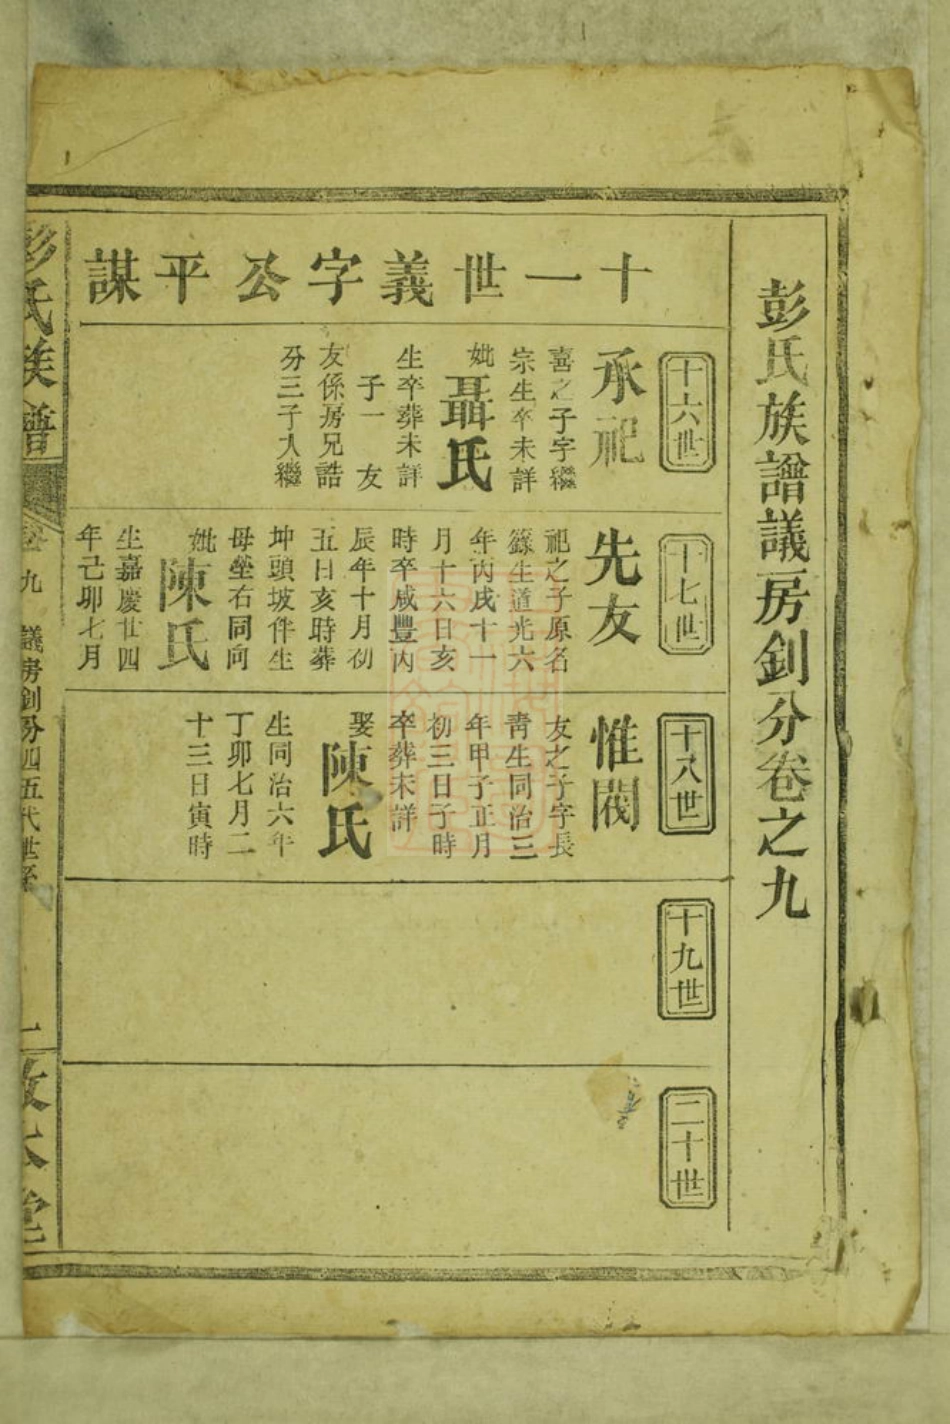 彭氏族譜議房釗分卷之九
十一世義字公平謀
十六世
承祀
喜之子字繼
宗生卒未詳
妣聶氏
生卒葬未詳
子一 友
友係房兄誥
分三子入繼
十七世
先友
祀之子原名
籙生道光六
年丙戌十一
月十六日亥
時卒咸豐丙
辰年十月初
五日亥時葬
坤頭坡伴生
母塋右同向
妣陳氏
生嘉慶廿四
年己卯七月
十八世
惟閥
友之子字長
青生同治三
年甲子正月
初三日子時
卒葬未詳
娶陳氏
生同治六年
丁卯七月二
十三日寅時
十九世
二十世
彭氏族譜
卷九 議房釗分四五代世系